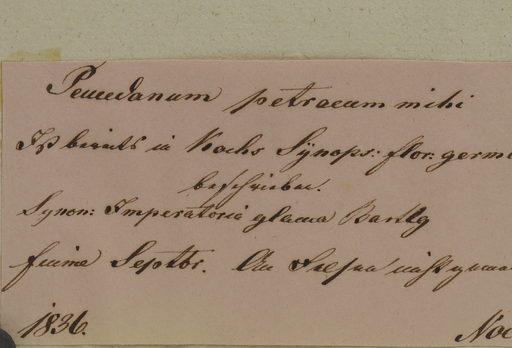 Peucedanum petraeum mihi
Ist bereits in Kochs Synops: flor: germ
beschrieben.
Synon: Imperatoria glauca Bartlg
fiume Septbr. An Felsen
1836. Noe